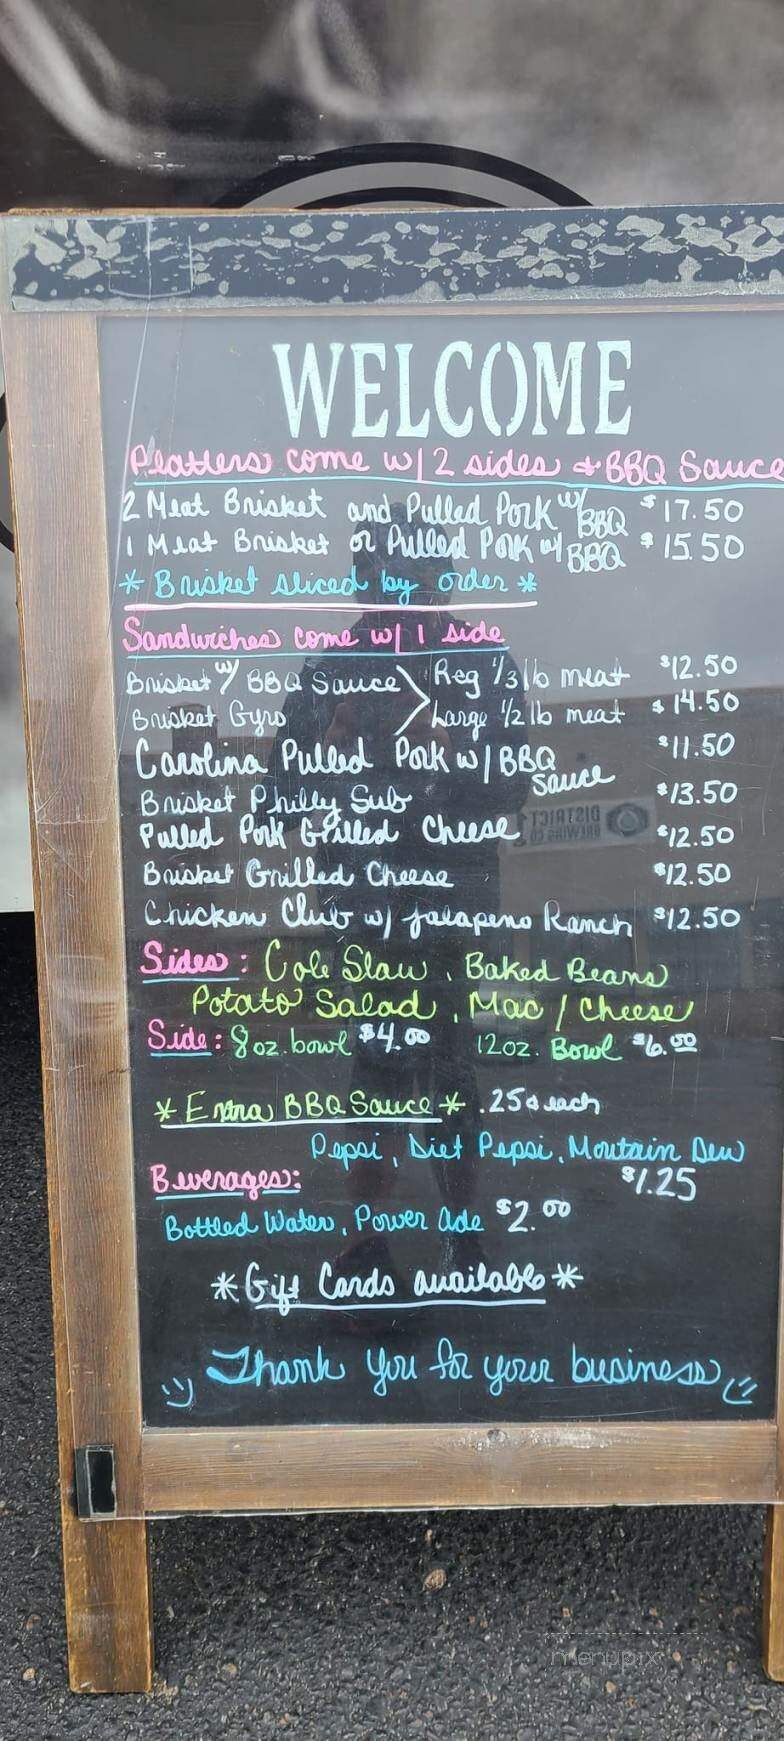 WELCOME
Platters come w/ 2 sides + BBQ Sauce
2 Meat Brisket and Pulled Pork w/ BBQ $17.50
1 Meat Brisket or Pulled Pork w/ BBQ $15.50
* Brisket sliced by order *
Sandwiches come w/ 1 side
Brisket w/ BBQ Sauce > Reg 1/3 lb meat $12.50
Brisket Gyro Large 1/2 lb meat $14.50
Carolina Pulled Pork w/ BBQ Sauce $11.50
Brisket Philly Sub $13.50
Pulled Pork Grilled Cheese $12.50
Brisket Grilled Cheese $12.50
Chicken Club w/ Jalapeno Ranch $12.50
Sides: Cole Slaw, Baked Beans
Potato Salad, Mac / Cheese
Side: 8 oz. bowl $4.00 12 oz. Bowl $6.00
* Extra BBQ Sauce * .25¢ each
Pepsi, Diet Pepsi, Moutain Dew
Beverages: $1.25
Bottled Water, Power Ade $2.00
* Gift Cards available *
Thank you for your business
DISTRICT 1
BREWING CO
menupix